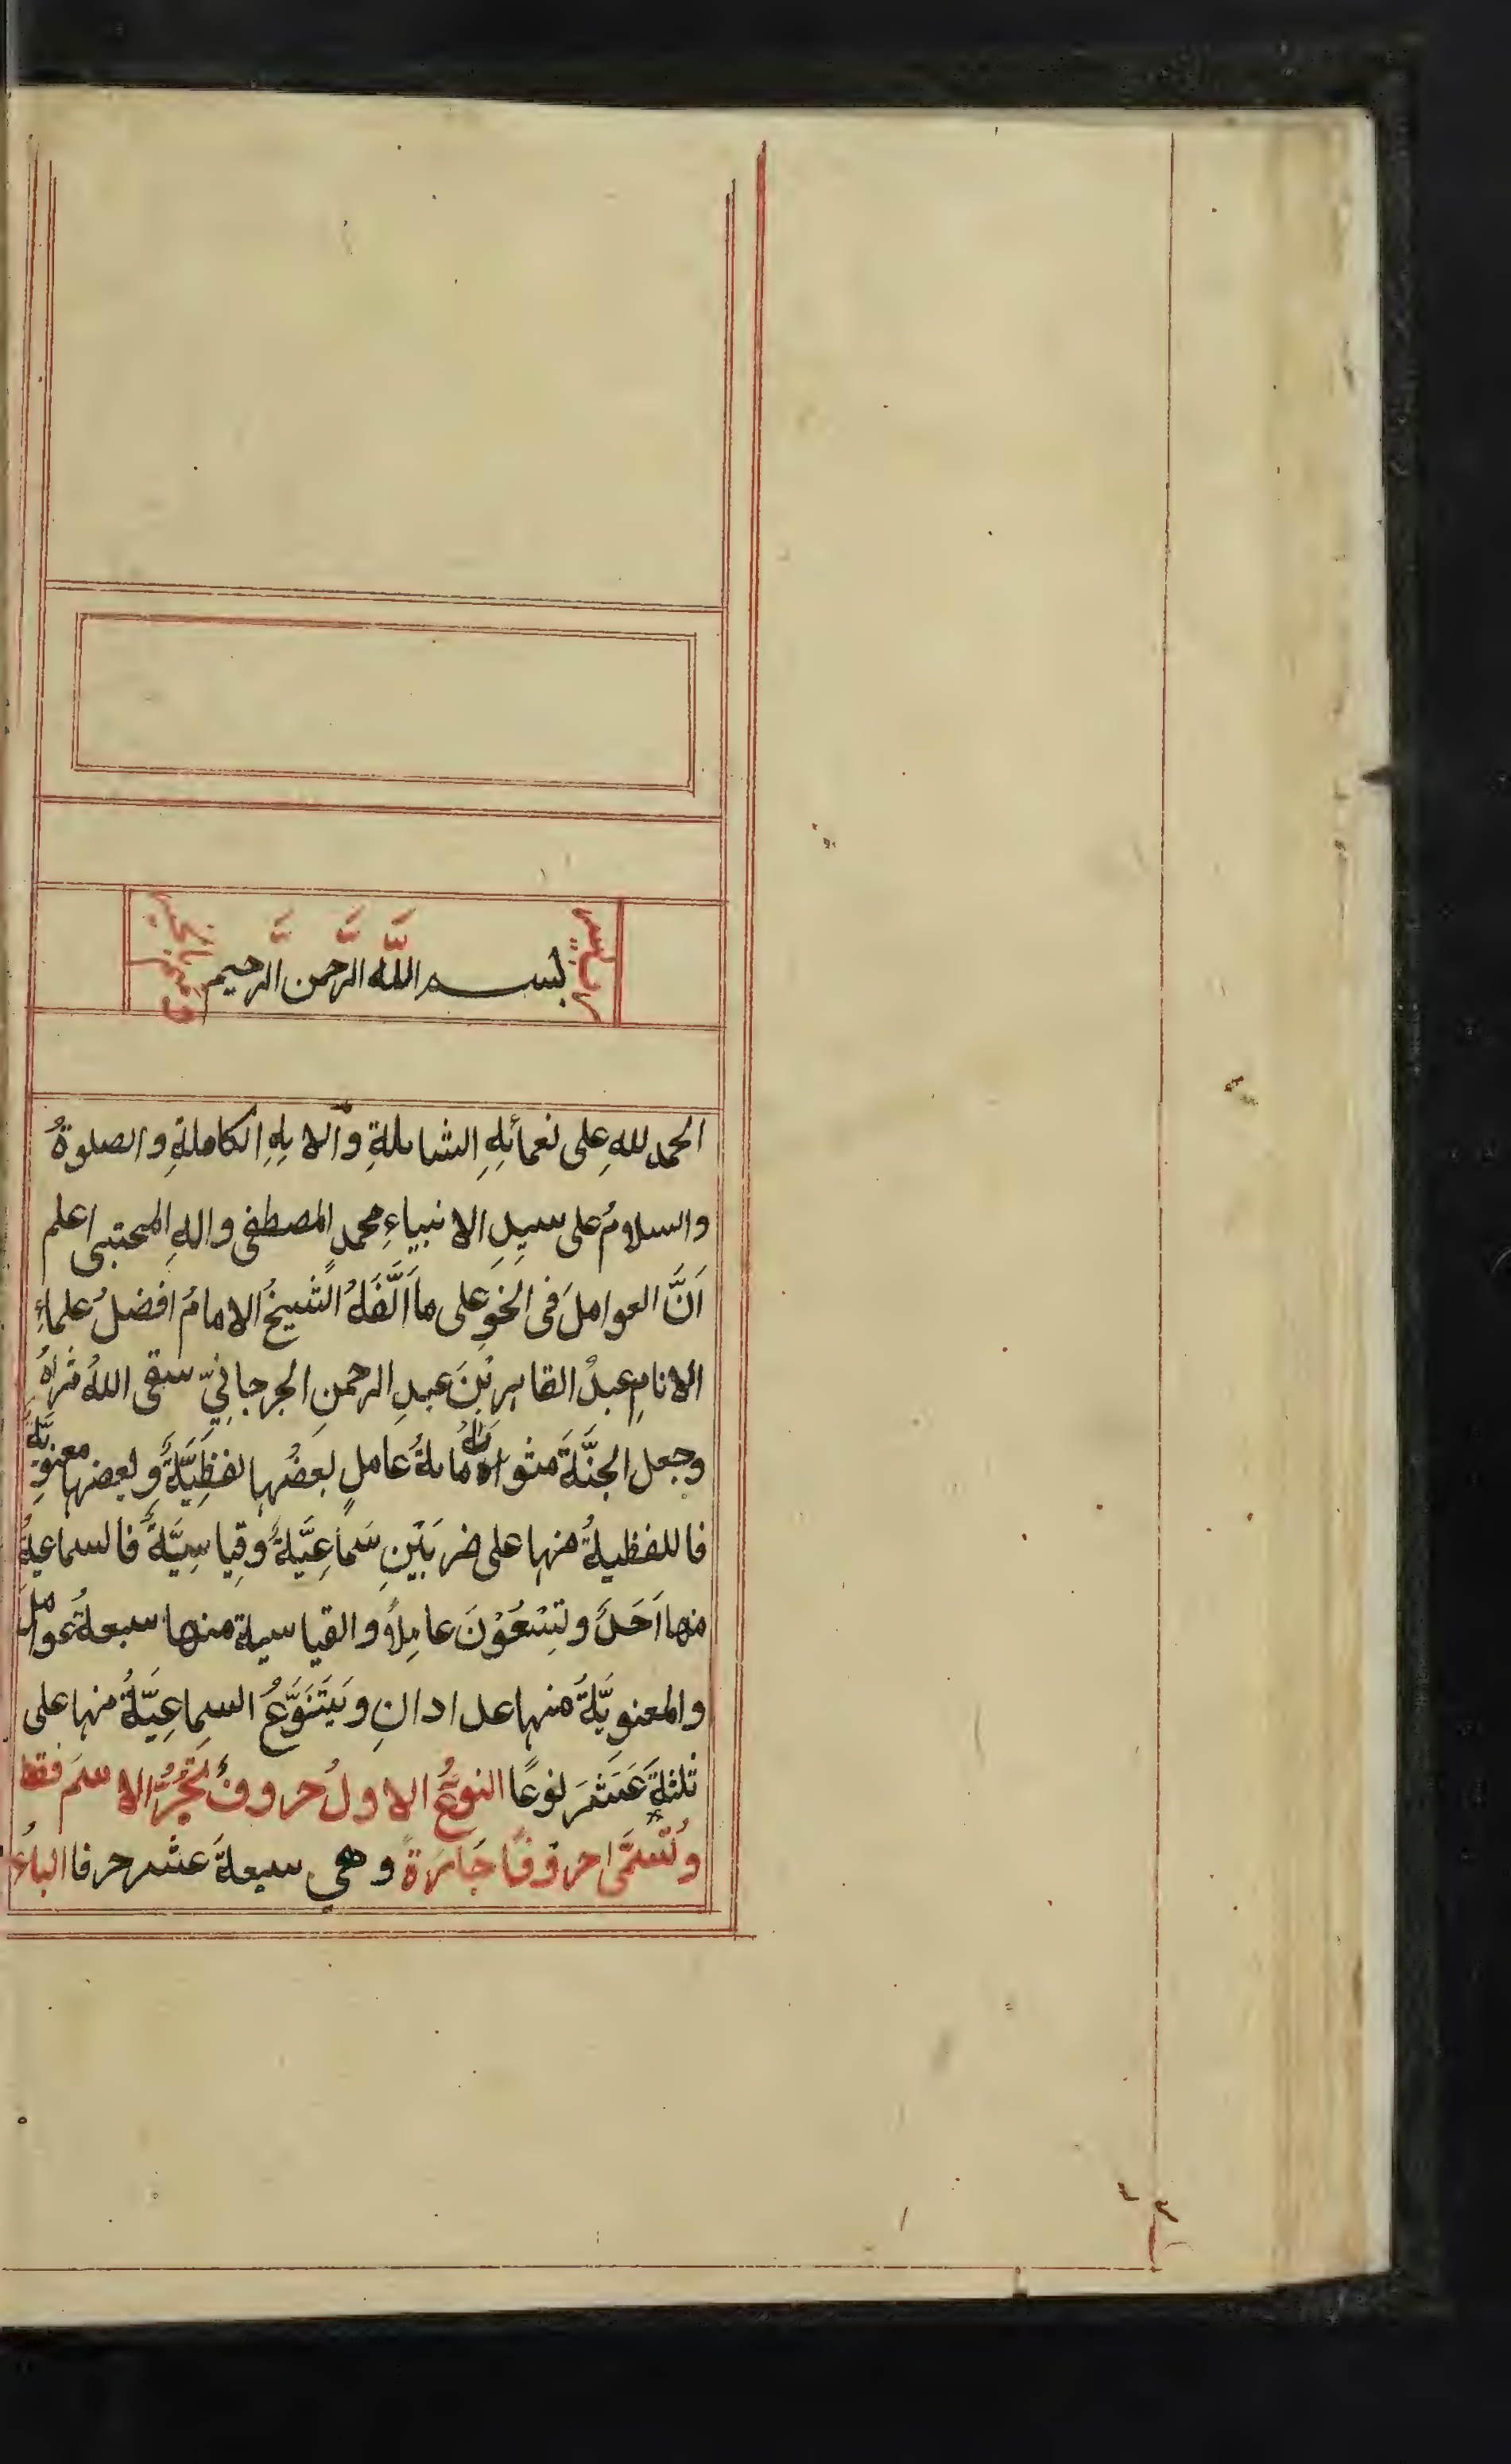 رب يسر
بسم الله الرحمن الرحيم
وتمم بالخير
الحمد للهِ على نعمائِهِ الشاملةِ وآلایِهِ الكاملةِ والصلوةُ
والسلامُ على سیدِ الانبیاءِ محمدٍ المصطفى والهِ المجتبى اعلم
اَنَّ العواملَ فى النحوِ على ما اَلَّفَهُ الشیخُ الامامُ افضلُ علماءِ
الانامِ عبدُ القاهرِ بْنَ عبدِ الرحمنِ الجرجانِيّ سقى اللهُ ثراهُ
وجعل الجنَّةَ مثواهُ مایةُ عاملٍ بعضُها لفظِیَّةٌ وبعضها معنوِیَّةٌ
فاللفظیةُ منها على ضربَیْنِ سَمَاعِیَّةٌ وقِیاسِیَّةٌ فالسماعیةُ
منها اَحَدٌ وتِسْعُوْنَ عامِلاً والقیاسیة منها سبعةُ عوامل
والمعنویَّةُ منها عددانِ ویَتَنَوَّعُ السماعِیَّةُ منها على
ثلثةَ عَشَرَ نوعًا النوعُ الاولُ حروفٌ تَجُرُّ الاسمَ فقط
وتُسَمَّى حروفًا جَارَةً وهي سبعةَ عشر حرفا الباءُ